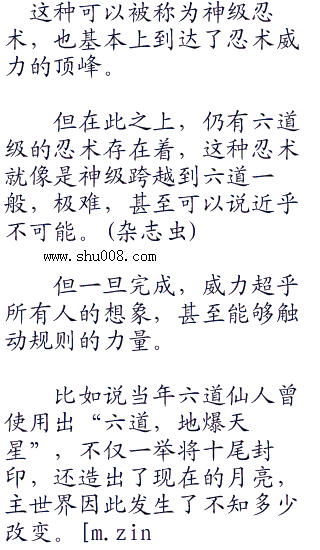 这种可以被称为神级忍
术，也基本上到达了忍术威
力的顶峰。
但在此之上，仍有六道
级的忍术存在着，这种忍术
就像是神级跨越到六道一
般，极难，甚至可以说近乎
不可能。(杂志虫)
www.shu008.com
但一旦完成，威力超乎
所有人的想象，甚至能够触
动规则的力量。
比如说当年六道仙人曾
使用出“六道，地爆天
星”，不仅一举将十尾封
印，还造出了现在的月亮，
主世界因此发生了不知多少
改变。[m.zin